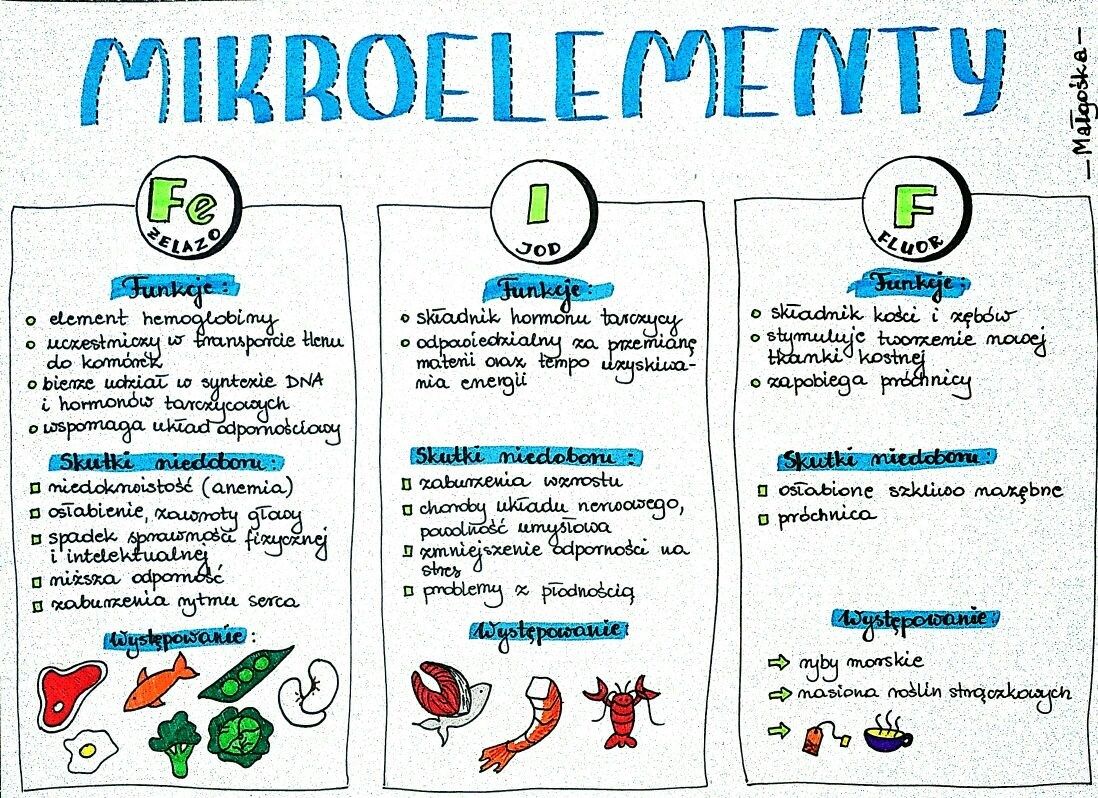 MIKROELEMENTY
— Małgośka —
Fe
ŻELAZO
Funkcje:
element hemoglobiny
uczestniczy w transporcie tlenu
do komórek
bierze udział w syntezie DNA
i hormonów tarczycowych
wspomaga układ odpornościowy
Skutki niedoboru:
niedokrwistość (anemia)
osłabienie, zawroty głowy
spadek sprawności fizycznej
i intelektualnej
niższa odporność
zaburzenia rytmu serca
Występowanie:
I
JOD
Funkcje:
składnik hormonu tarczycy
odpowiedzialny za przemianę
materii oraz tempo uzyskiwa-
nia energii
Skutki niedoboru:
zaburzenia wzrostu
choroby układu nerwowego,
powolność umysłowa
zmniejszenie odporności na
stres
problemy z płodnością
Występowanie:
F
FLUOR
Funkcje:
składnik kości i zębów
stymuluje tworzenie nowej
tkanki kostnej
zapobiega próchnicy
Skutki niedoboru:
osłabione szkliwo nazębne
próchnica
Występowanie:
ryby morskie
nasiona roślin strączkowych